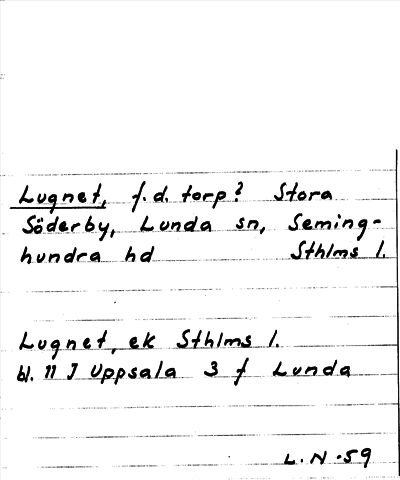 Lugnet, f.d. torp? Stora
Söderby, Lunda sn, Seming-
hundra hd Sthlms l.
Lugnet, ek Sthlms l.
bl. 11 I Uppsala 3 f Lunda
L.N.59